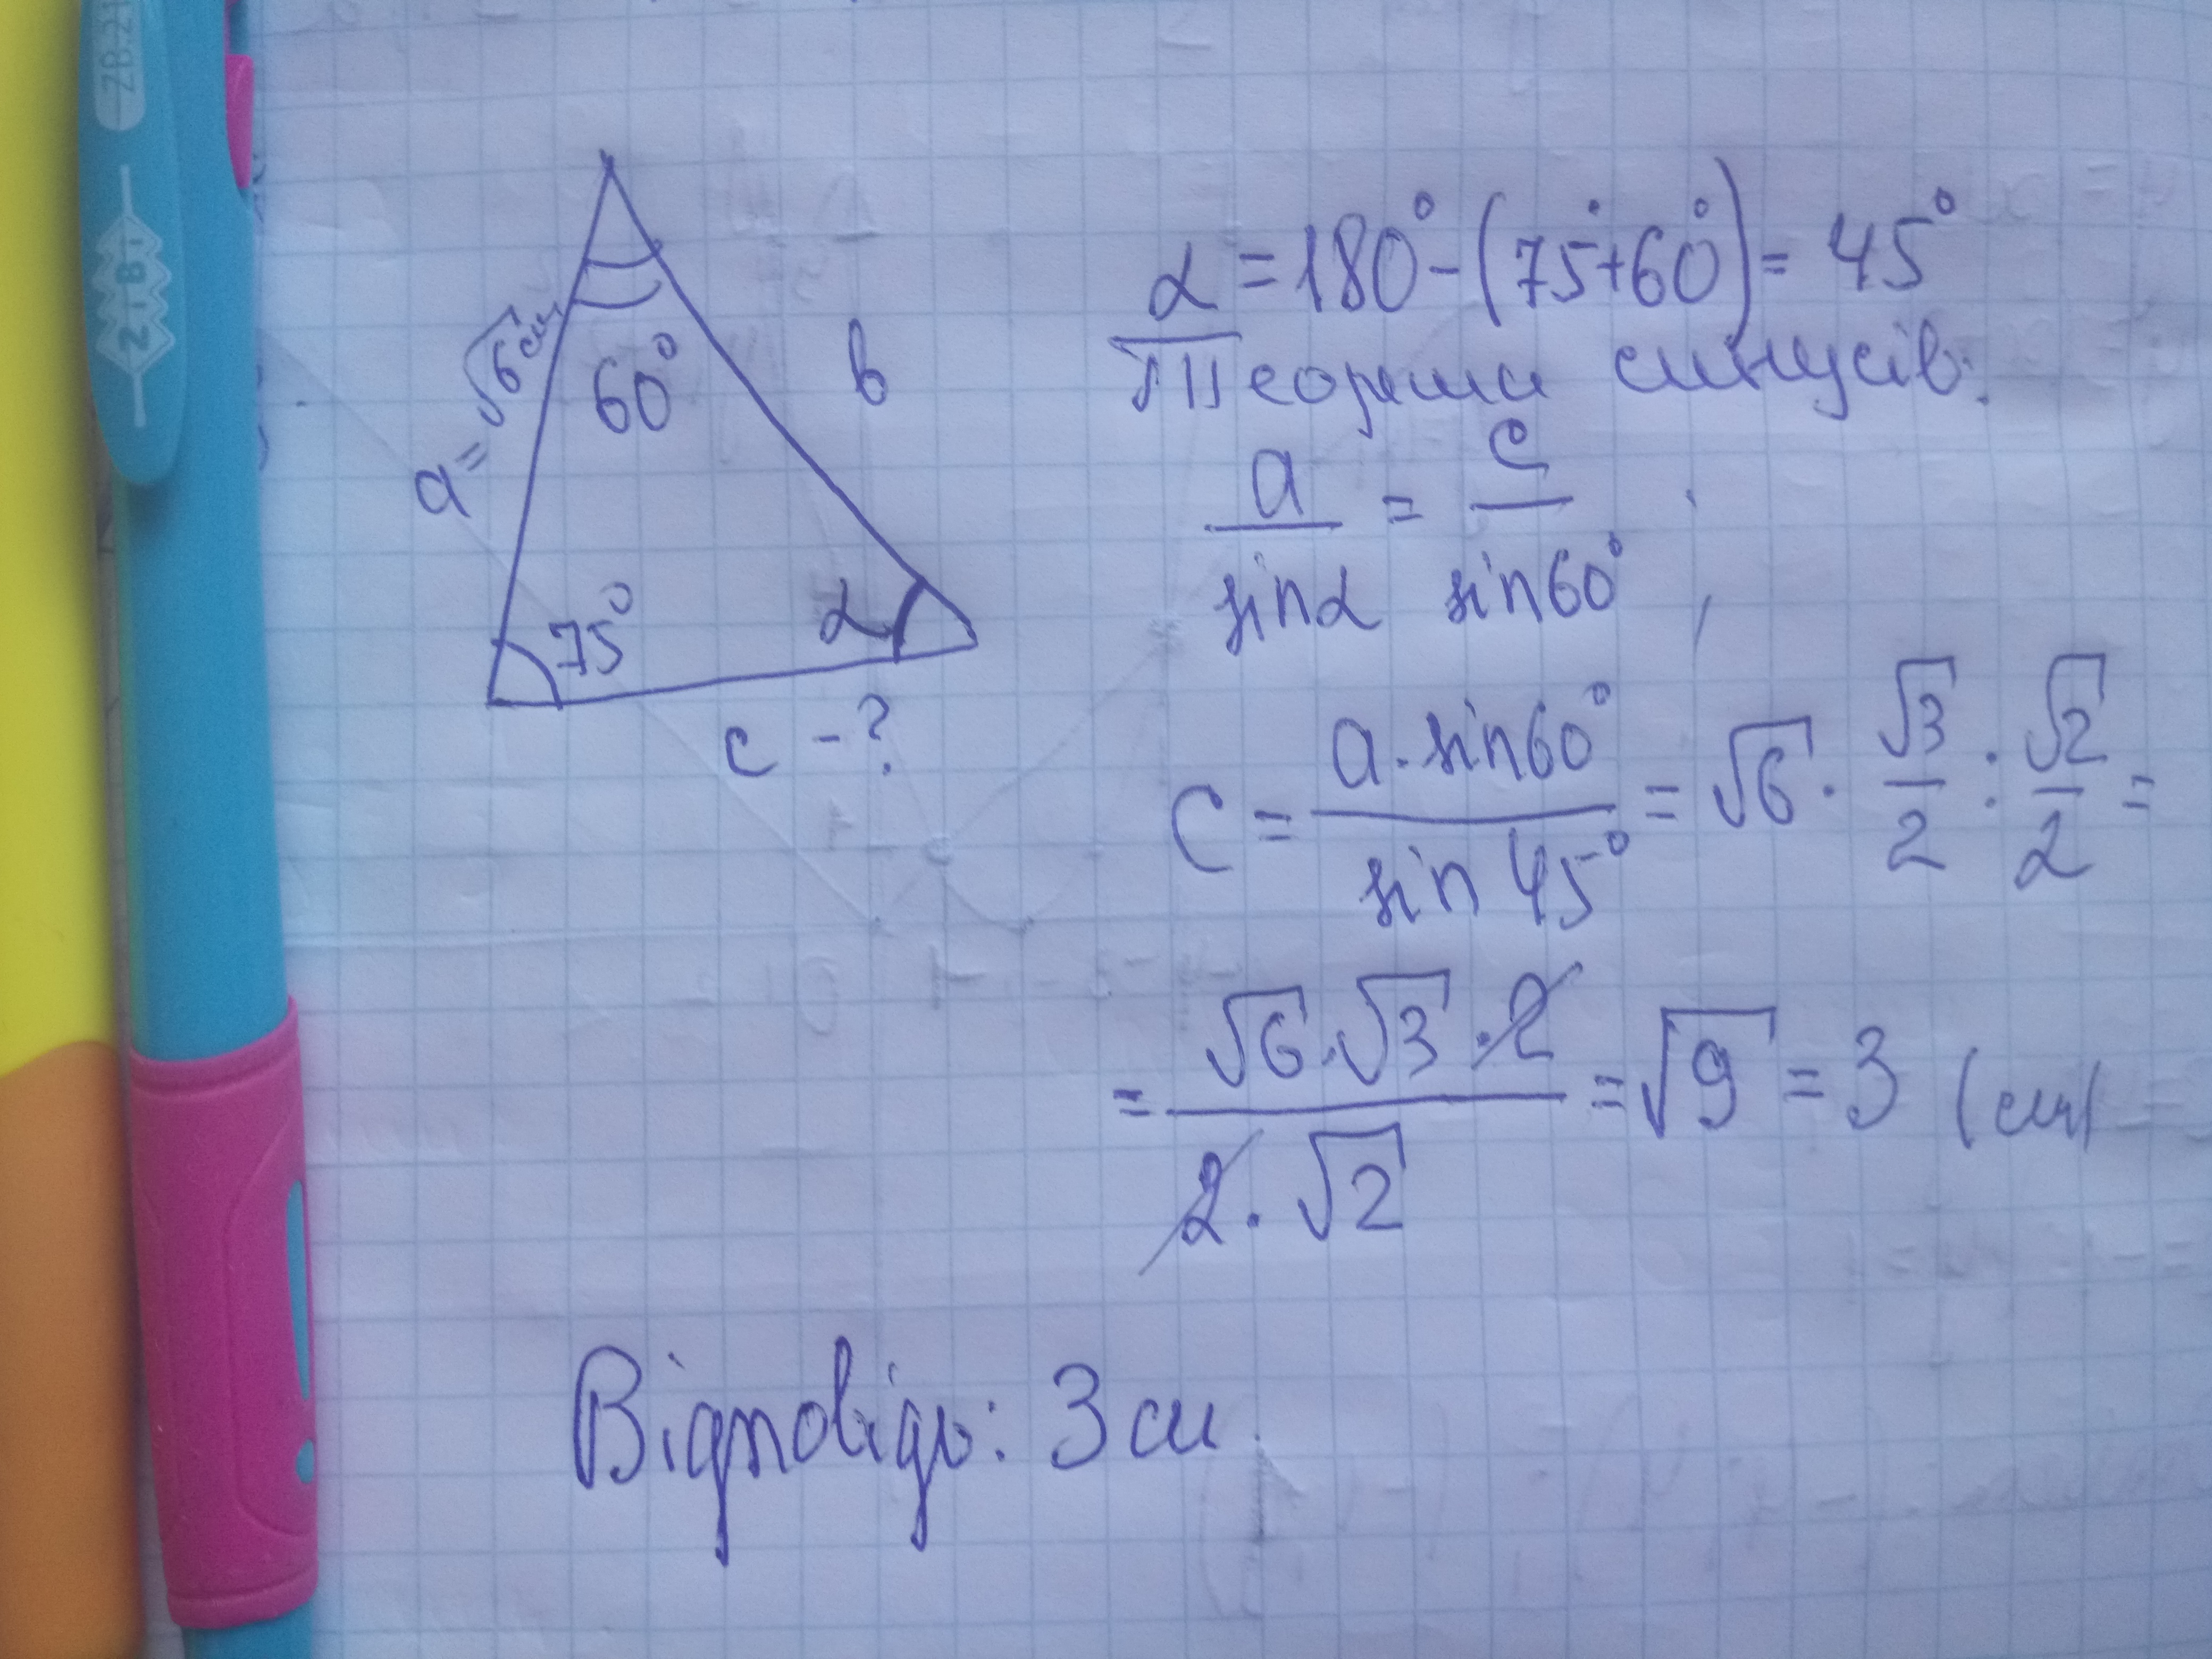 ZB.21
Z-B-1
a = √6 см
60°
b
75°
α
c - ?
α = 180° - (75° + 60°) = 45°
Теорема синусів:
a / sinα = c / sin60° ;
c = a · sin60° / sin 45° = √6 · √3/2 : √2/2 =
= √6 · √3 · 2 / 2 · √2 = √9 = 3 (см)
Відповідь: 3 см